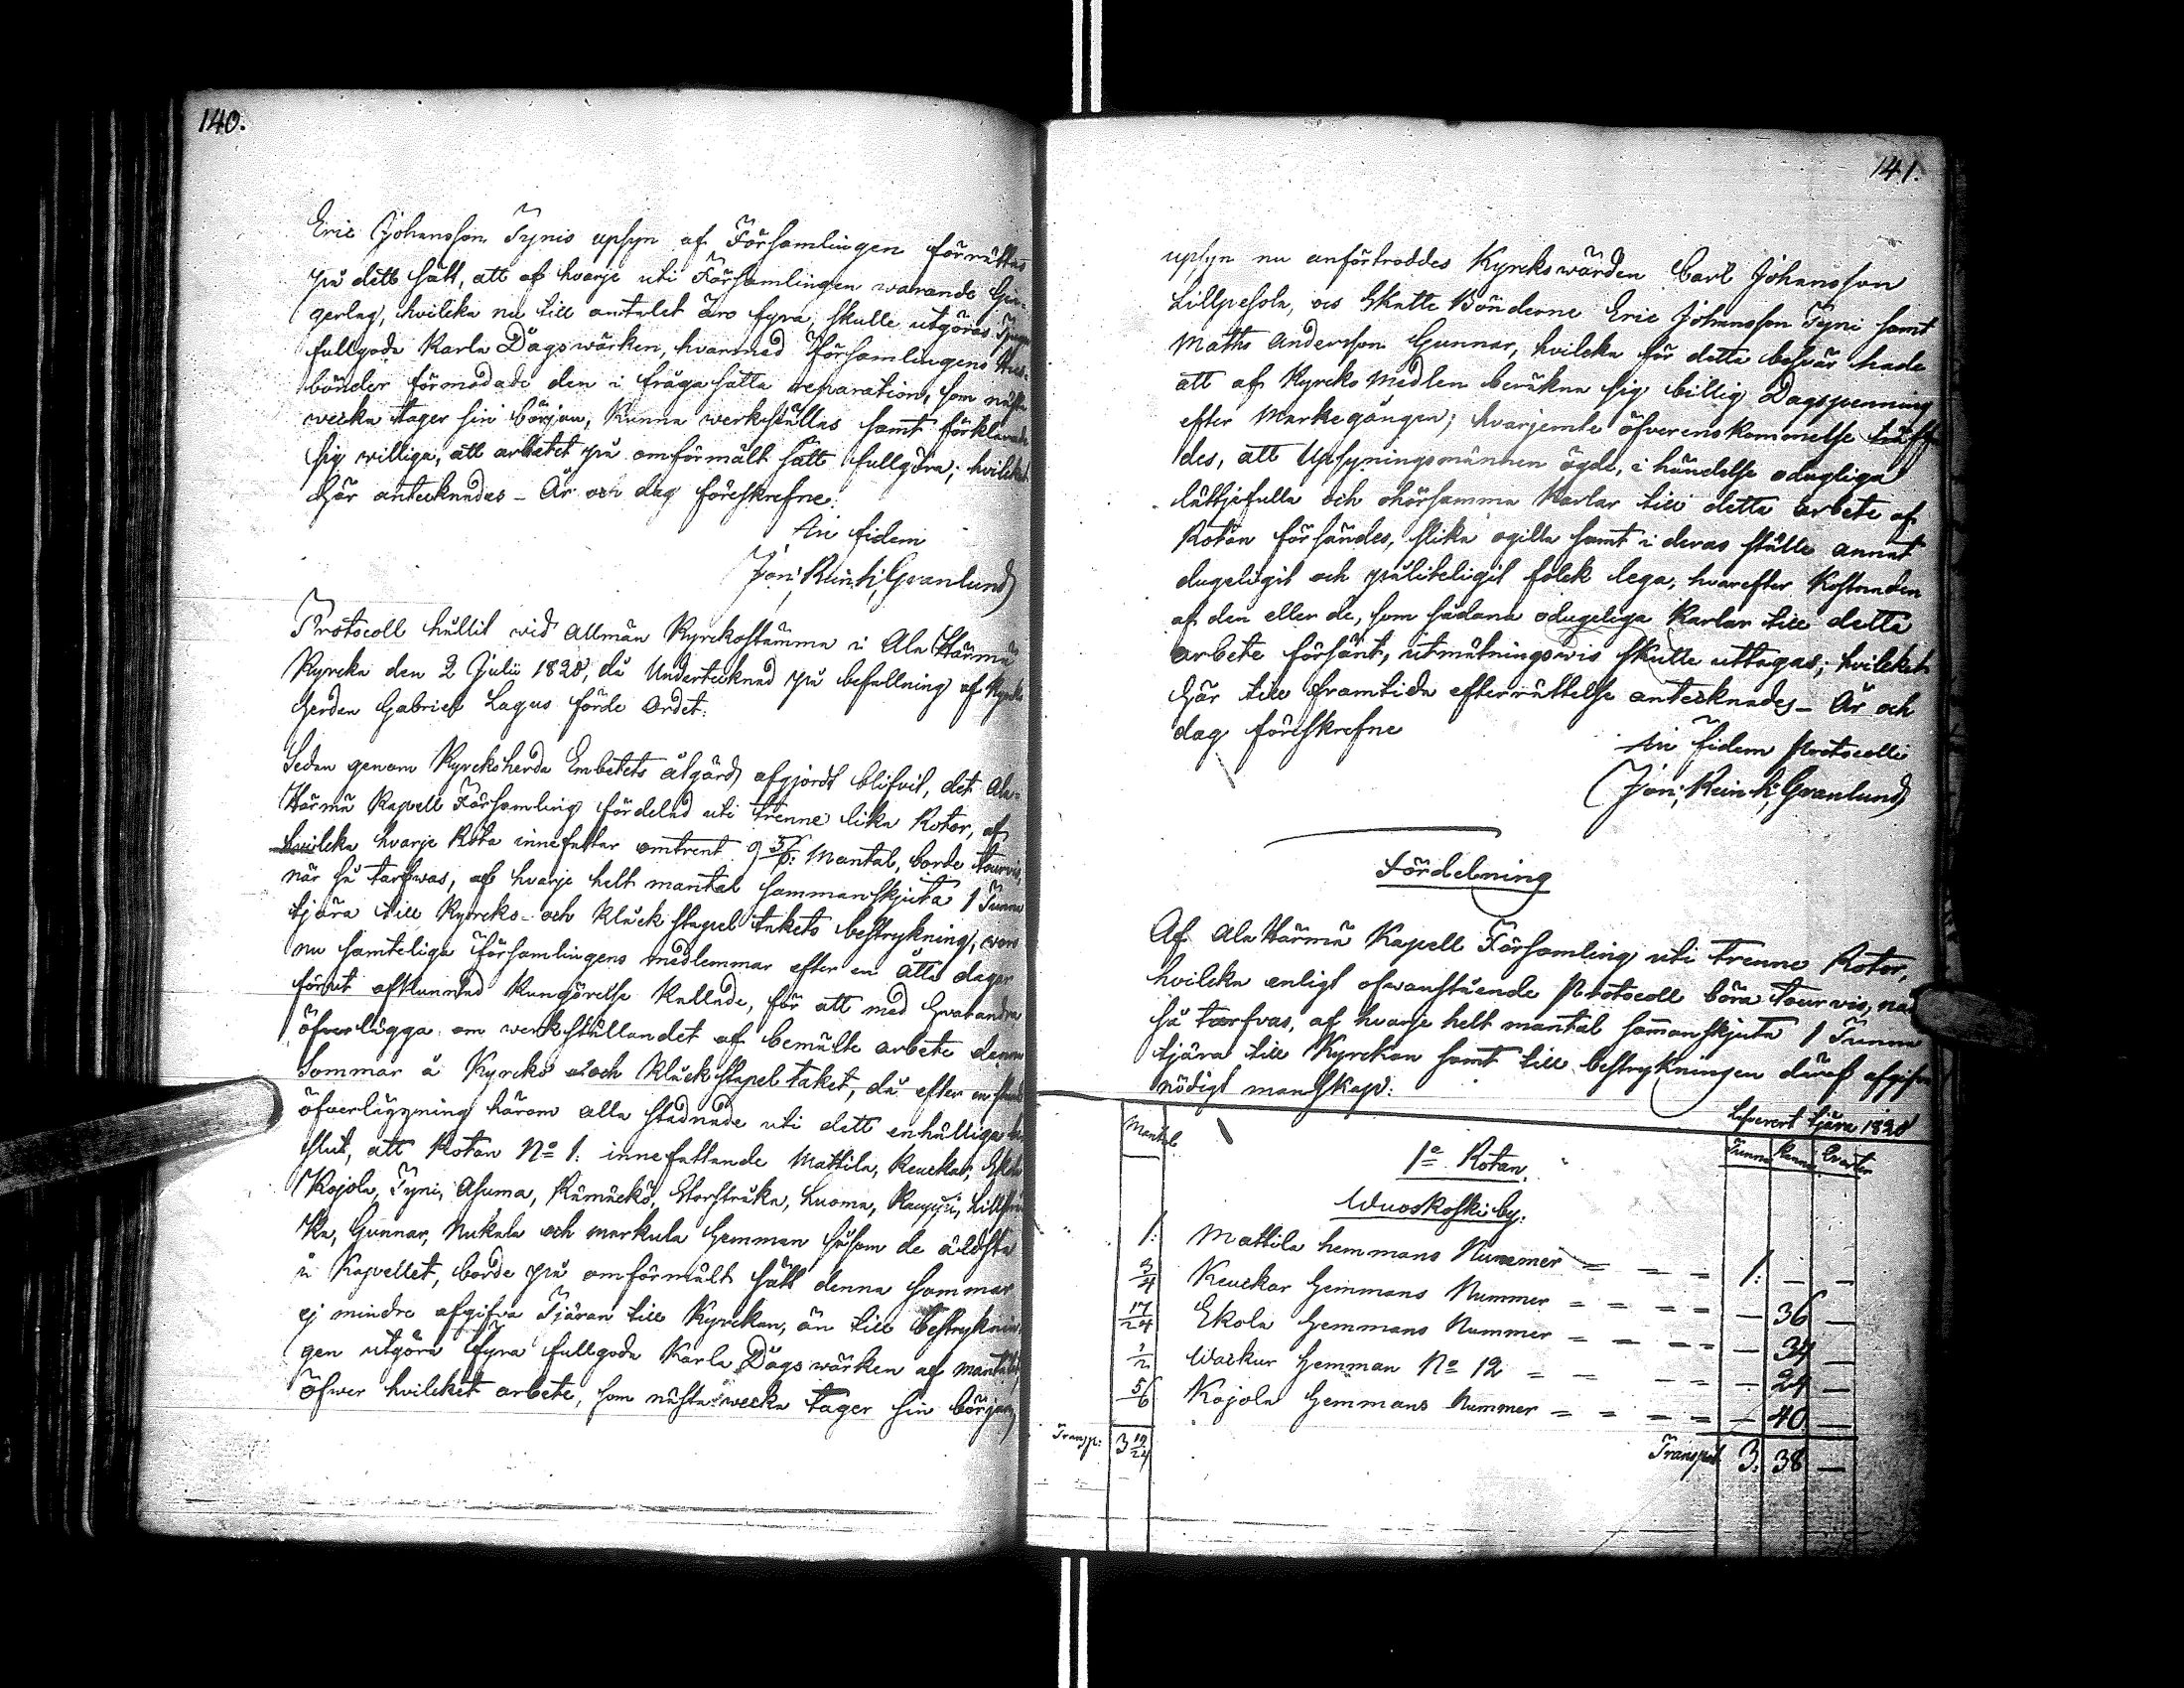 140.
Eric Johansson Tynis upsyn af Församlingen förrättas
på dett sätt, att af hvarje uti Församlingen warande
gerlag, hvilcka nu till antalet äro fyra, skulle utgöras
fullgoda Karla Dagswärken, hvarmed Församlingens Hus-
bönder förmodade den i fråga satta reparation, som nästa
wecka tager sin början, kunna werkställas samt förklarade
sig williga, att arbetet på omförmält sätt fullgöra; hvilcket
här antecknades - År och dag förescrefne.
In fidem
Joh: Reinh: Granlund
Protocoll hållit wid allmän Kyrckostämma i Ala Härmä
Kyrcka den 2 Julii 1828, då Undertecknad på befallning af Kyrcko
herden Gabriel Lagus förde ordet.
Sedan genom Kyrckoherda Embetets åtgärd afgjordt blifvit, det Ala-
Härmä Kapell Församling fördelad uti trenne lika Rotar, af
hvilcka hvarje Rota innefattar omtrent 9 5/6: Mantal, borde tourvis,
när så tarfwas, af hvarje helt mantal sammanskjuta 1 Tunna
tjära till Kyrcko- och Klåckstapel takets bestrykning, woro
nu samteliga Församlingens medlemmar efter en åtta dagar
förut afkunnad Kungörelse kallade, för att med hvarandra
öfverlägga om werkställandet af bemälte arbete denna
Sommar å Kyrcko och Klåckstapel taket, då efter en
öfverläggning härom alla stadnade uti dett enhälliga be-
slut, att Rotan No 1: innefattande Mattila, Keuckar, Ekola
Kojola, Tyni, Asuma, Kämäckö, Storstråka, Luoma, Kauppi, Lillstrå
ka, Gunnar, Nukala och Markula Hemman såsom de äldsta
i Kapellet, borde på omförmält sätt denna sommar
ej mindre afgifva Tjäran till Kyrckan, än till bestryknin-
gen utgöra fyra fullgoda Karla Dagswärken af mantalet,
öfwer hvilcket arbete, som nästa wecka tager sin början,
141.
upsyn nu anförtroddes Kyrckowärden Carl Johansson
Lillpesola, och Skatte Bönderne Eric Johansson Tyni samt
Matts Andersson Gunnar, hvilcka för detta beswär hade
att af Kyrcko Medlen beräkna sig billig Dagspenning
efter Markegången; hvarjemte öfverenskommelse träffa
des, att Upsyningsmännen ägde, i händelse odugliga
lättjefulla och ohörsamma Karlar till detta arbete af
Rotan försändes, slika ogilla samt i deras ställe annat
dugeligit och påliteligit folck lega, hvarefter Kostnaden
af den eller de, som sådana odugeliga Karlar till detta
arbete försänt, utmätningswis skulle uttagas; hvilcket
här till framtida efterrättelse antecknades - År och
dag förescrefne
In fidem Protocolli
Joh: Reinh: Granlund
Fördelning
Af Ala Härmä Kapell Församling uti trenne Rotar,
hvilcka enligt ofwanstående Protocoll böra tourvis, när
så tarfvas, af hvarje helt mantal sammanskjuta 1 Tunna
tjära till Kyrckan samt till bestrykningen däraf afgifva
nödigt manskap:
Lefverert tjära 1828
Mantal Tunna Kanna Qvarter
1o Rotan
Wuoskoski by.
1: Mattila hemmans Nummer = — — 1: — —
3/4 Keuckar Hemmans Nummer = = — — — 36 —
17/24 Ekola Hemmans Nummer = — — — — 34 —
1/2 Wackur Hemman No 12 = — — — — 24 —
5/6 Kojola Hemmans Nummer = = — — — 40 —
Transp: 3 19/24 Transport 3: 38 —